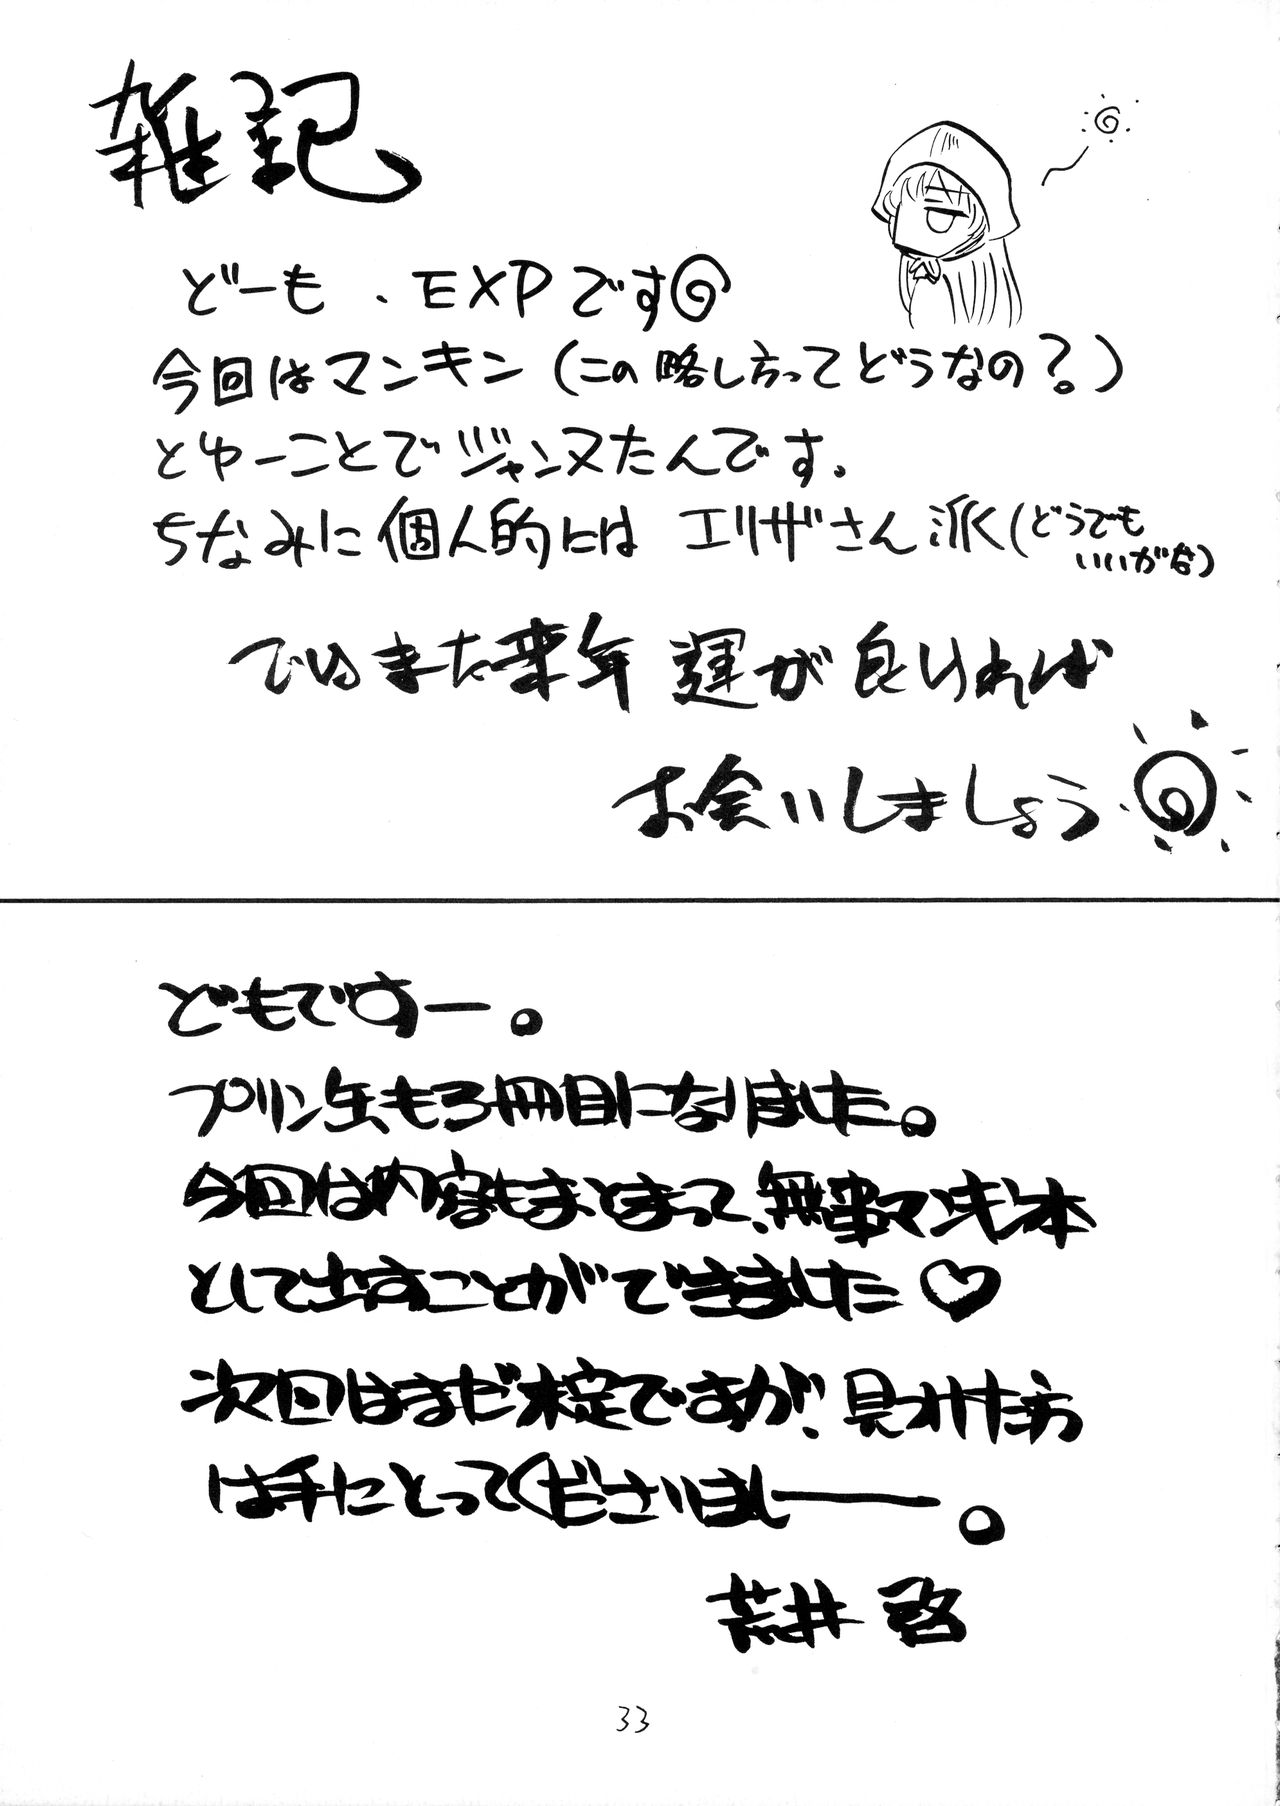 雑記
どーも、EXPです
今回はマンキン（この略し方ってどうなの？）
とゆーことでジャンヌたんです。
ちなみに個人的にはエリザさん派（どうでも
いいがな）
でわまた来年 運が良ければ
お会いしましょう
どもですー。
プリン缶も3冊目になりました。
今回は内容もまとまって、無事マンキン本
として出すことができました♡
次回はまだ未定ですが、見つけた方
は手にとってくださいましー。
荒井 啓
33